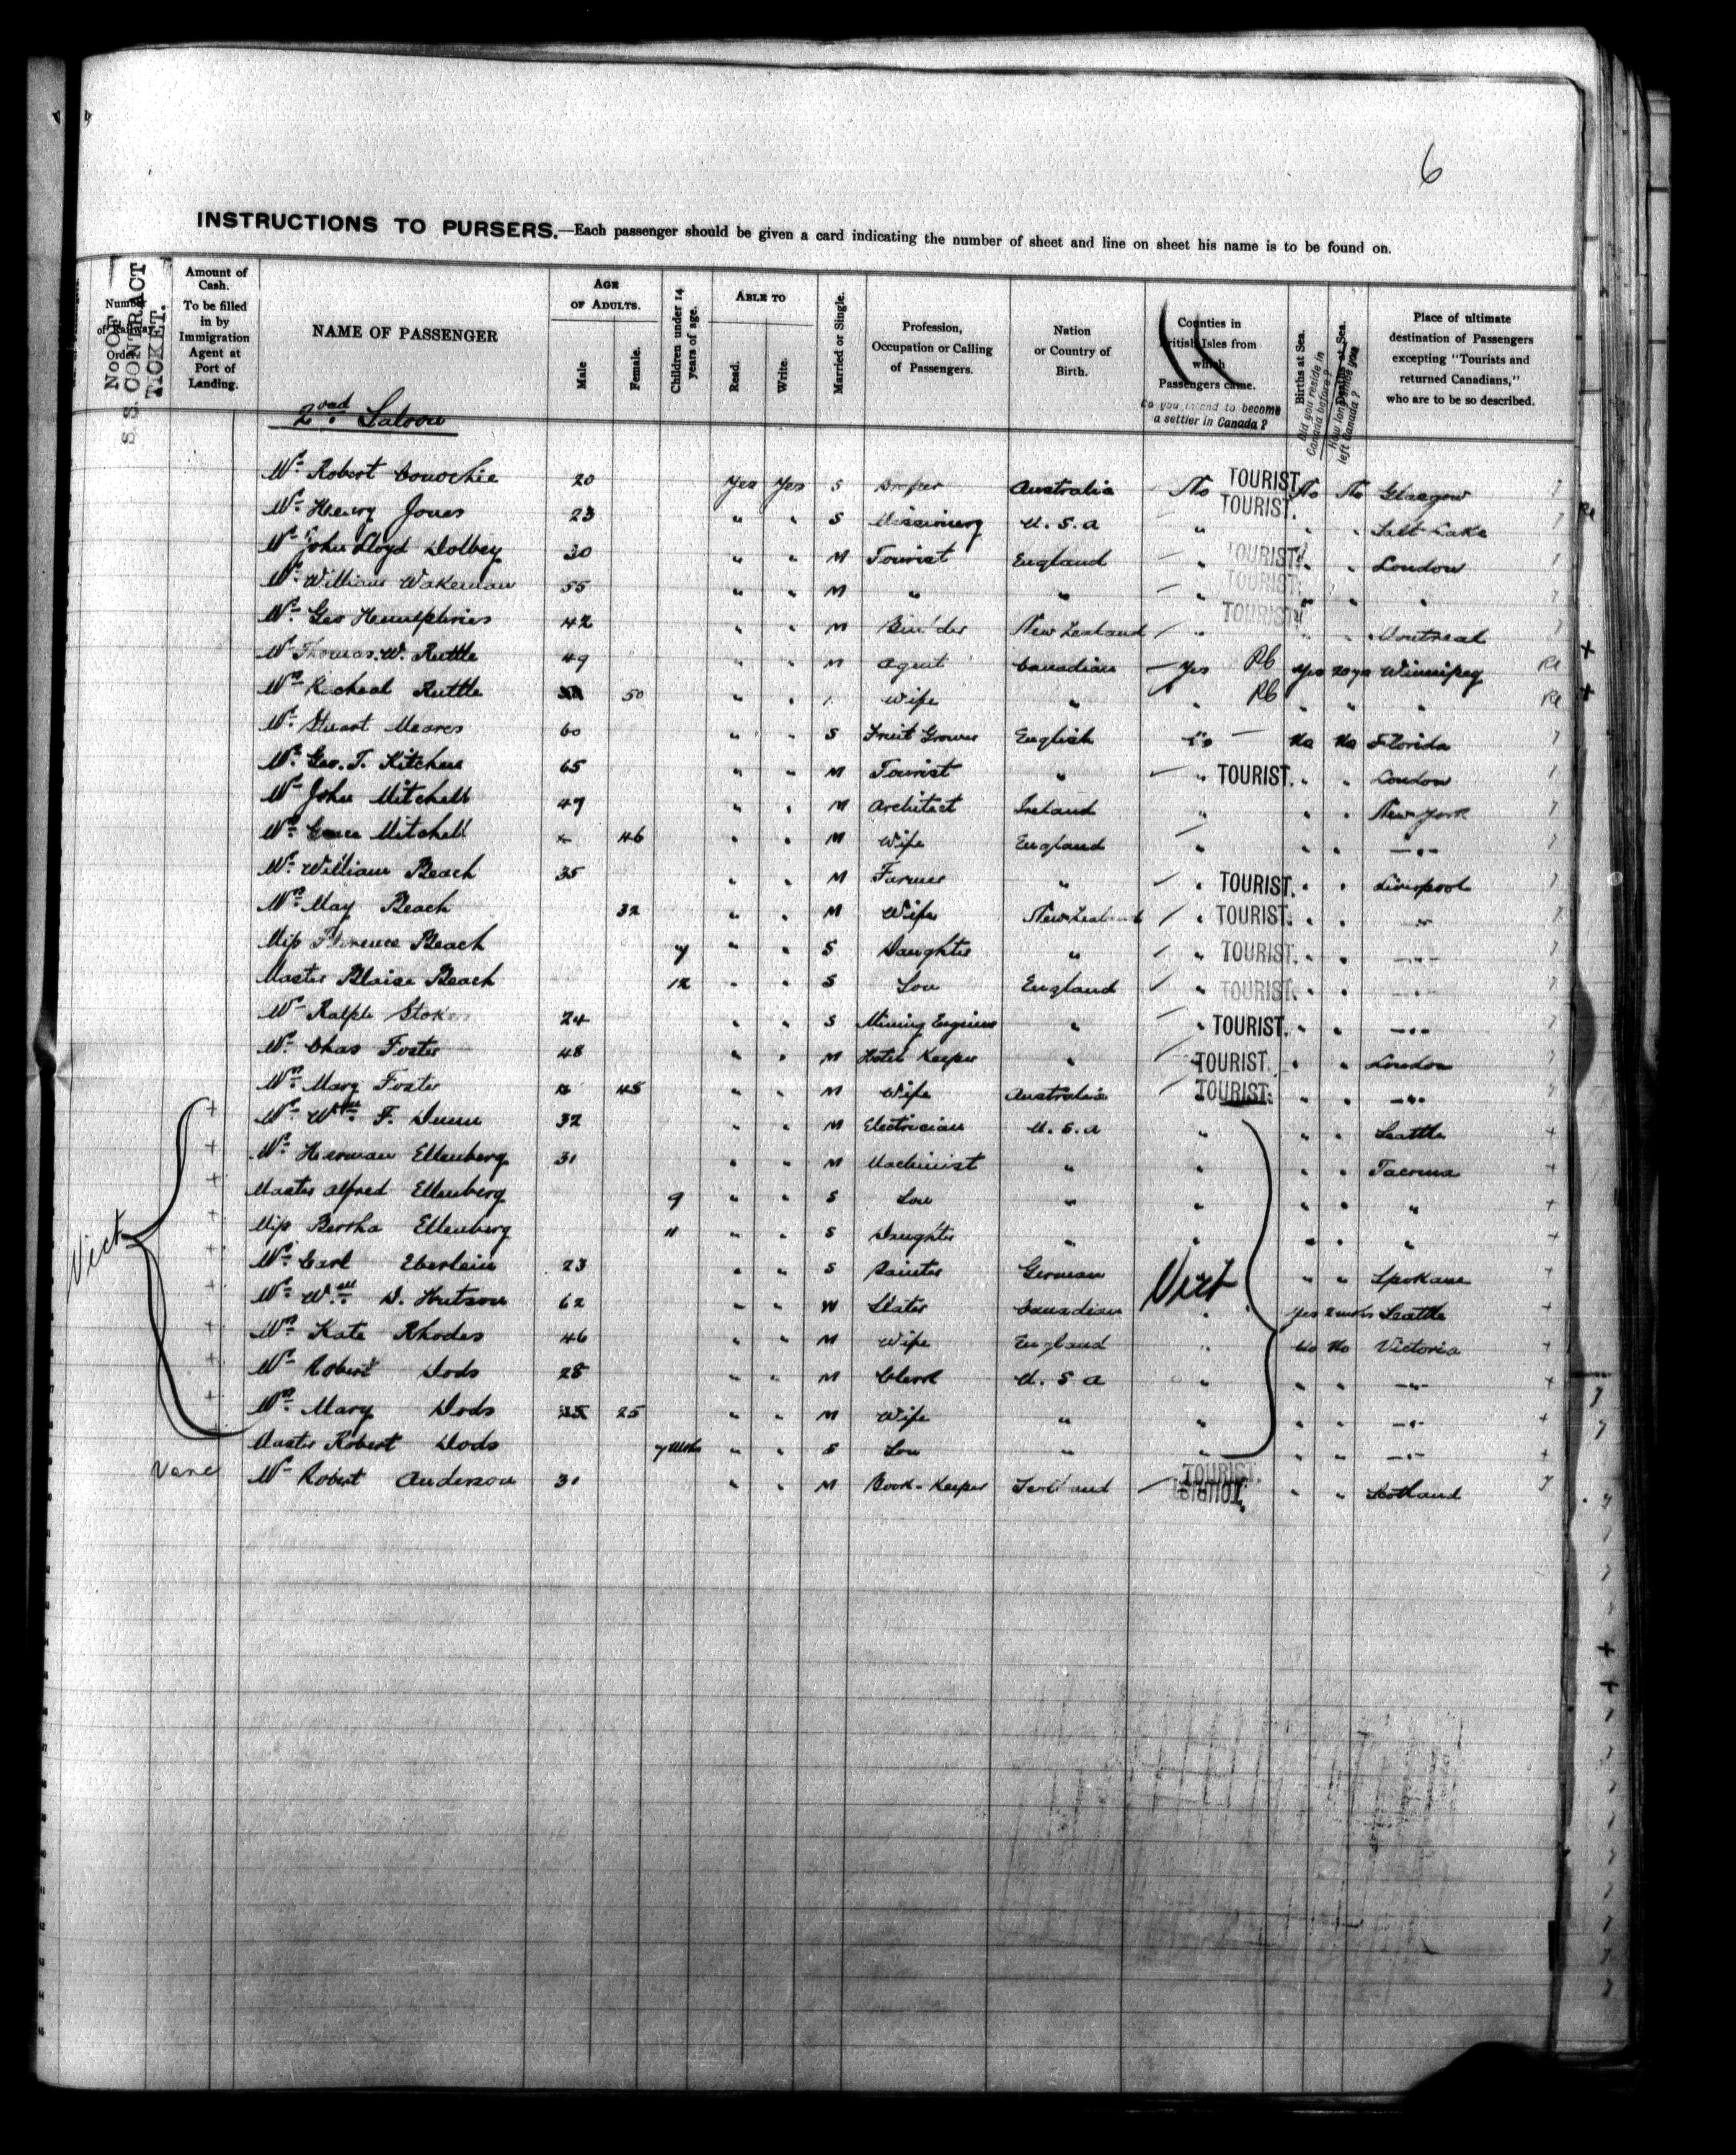 6
INSTRUCTIONS TO PURSERS.—Each passenger should be given a card indicating the number of sheet and line on sheet his name is to be found on.
Number of Railway Order
No. OF S. S. CONTRACT TICKET.
Amount of Cash. To be filled in by Immigration Agent at Port of Landing.
NAME OF PASSENGER
AGE OF ADULTS. Male Female.
Children under 14 years of age.
ABLE TO Read. Write.
Married or Single.
Profession, Occupation or Calling of Passengers.
Nation or Country of Birth.
Counties in British Isles from which Passengers came.
Do you intend to become a settler in Canada?
Births at Sea.
Did you reside in Canada before?
Deaths at Sea.
How long since you left Canada?
Place of ultimate destination of Passengers excepting "Tourists and returned Canadians," who are to be so described.
2nd Saloon
Mr Robert Conochie 20 Yes Yes S Draper Australia No TOURIST. No No Glasgow
Mr Henry Jones 23 " " S Missionery U.S.A " TOURIST. " " Salt Lake
Mr John Lloyd Dolbey 30 " " M Tourist England " TOURIST. " " London
Mr William Wakeman 55 " " M " " " TOURIST. " " "
Mr Geo Humphries 42 " " M Builder New Zealand " TOURIST. " " Montreal
Mr Thomas. W. Ruttle 49 " " M Agent Canadian Yes Rb Yes 20 yrs Winnipeg
Mrs Racheal Ruttle 50 " " Wife " " Rb " " "
Mr Stuart Meares 60 " " S Fruit Grower English No No Florida
Mr Geo. T. Kitchen 65 " " M Tourist " " TOURIST. " " London
Mr John Mitchell 47 " " M Architect Ireland " " " New York
Mrs Grace Mitchell 46 " " M Wife England " " " —"—
Mr William Beach 35 " " M Farmer " " TOURIST. " " Liverpool
Mrs May Beach 32 " " M Wife New Zealand " TOURIST. " " "
Miss Florence Beach 7 " " S Daughter " " TOURIST. " " —"—
Master Blaise Beach 12 " " S Son England " TOURIST. " " "
Mr Ralph Stokes 24 " " S Mining Engineer " " TOURIST. " " —"—
Mr Chas Foster 48 " " M Hotel Keeper " TOURIST. " " London
Mrs Mary Foster 45 " " M Wife Australia TOURIST. " " —"—
Mr Wm F. Dunn 32 " " M Electrician U.S.A " " " Seattle
Mr Herman Ellenberg 31 " " M Machinist " " " " Tacoma
Master Alfred Ellenberg 9 " " S Son " " " " "
Miss Bertha Ellenberg 11 " " S Daughter " " " " "
Vict
Mr Carl Eberlein 23 " " S Painter German Vict " " Spokane
Mr Wm D. Hutson 62 " " W Slater Canadian " Yes 2 mths Seattle
Mrs Kate Rhodes 46 " " M Wife England " No No Victoria
Mr Robert Dods 28 " " M Clerk U.S.A " " " —"—
Mrs Mary Dods 25 " " M Wife " " " " —"—
Master Robert Dods 7 mths " " S Son " " " " —"—
Vanc Mr Robert Anderson 31 " " M Book-Keeper Scotland TOURIST. " " Scotland